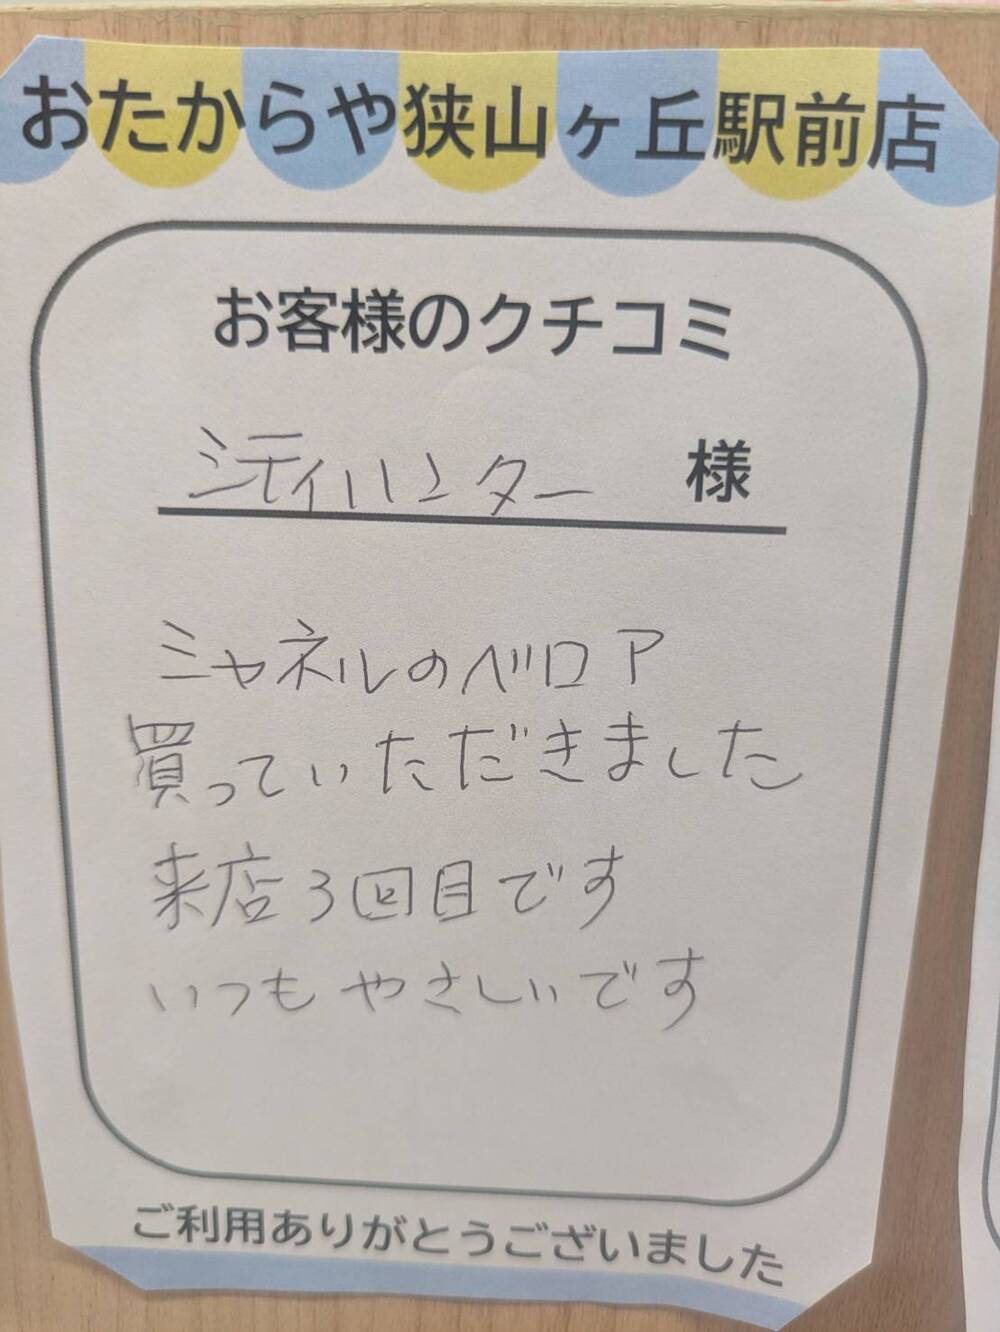 おたからや狭山ヶ丘駅前店
お客様のクチコミ
シティハンター 様
シャネルのベロア
買っていただきました
来店3回目です
いつもやさしいです
ご利用ありがとうございました